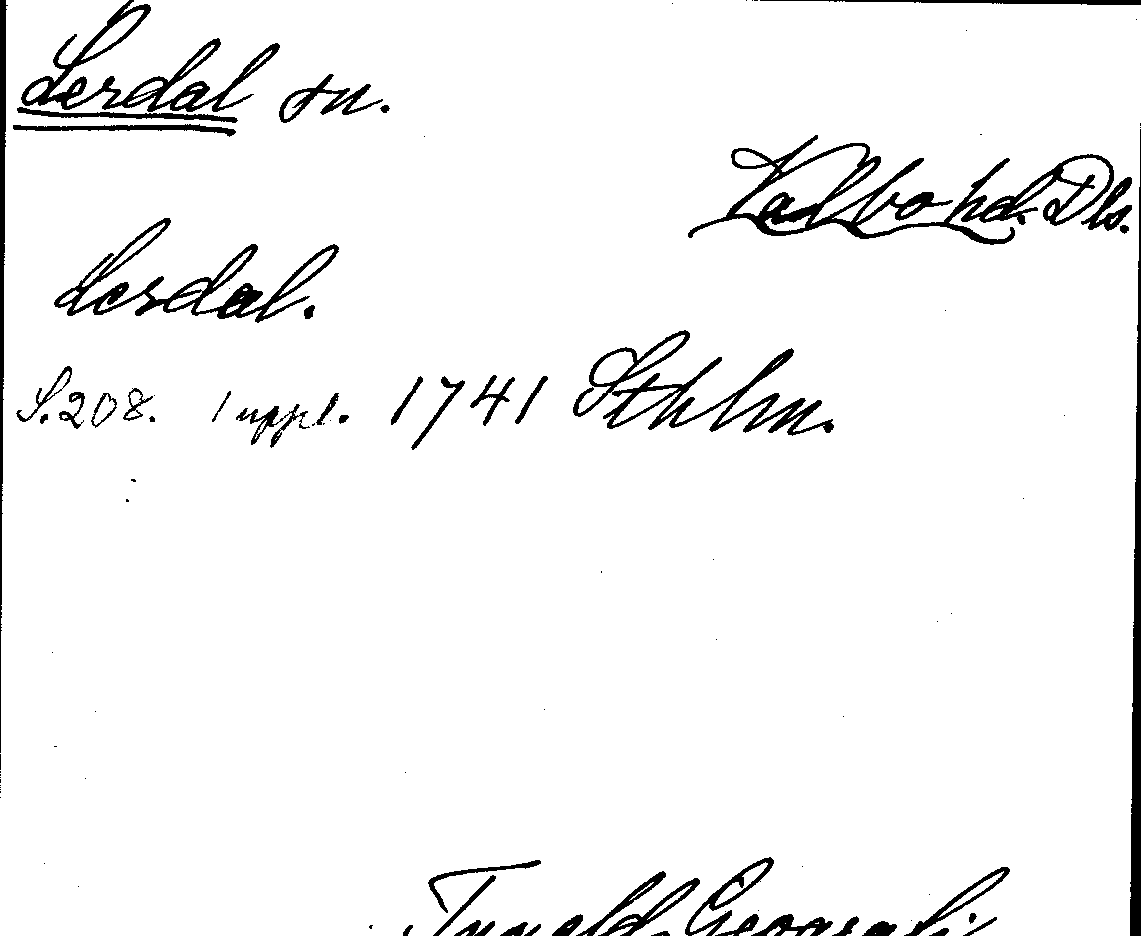 Lerdal sn.
Valbo hd. Dls.
Lerdal.
S. 208. 1 uppl. 1741 Sthlm.
Tuneld, Geografi